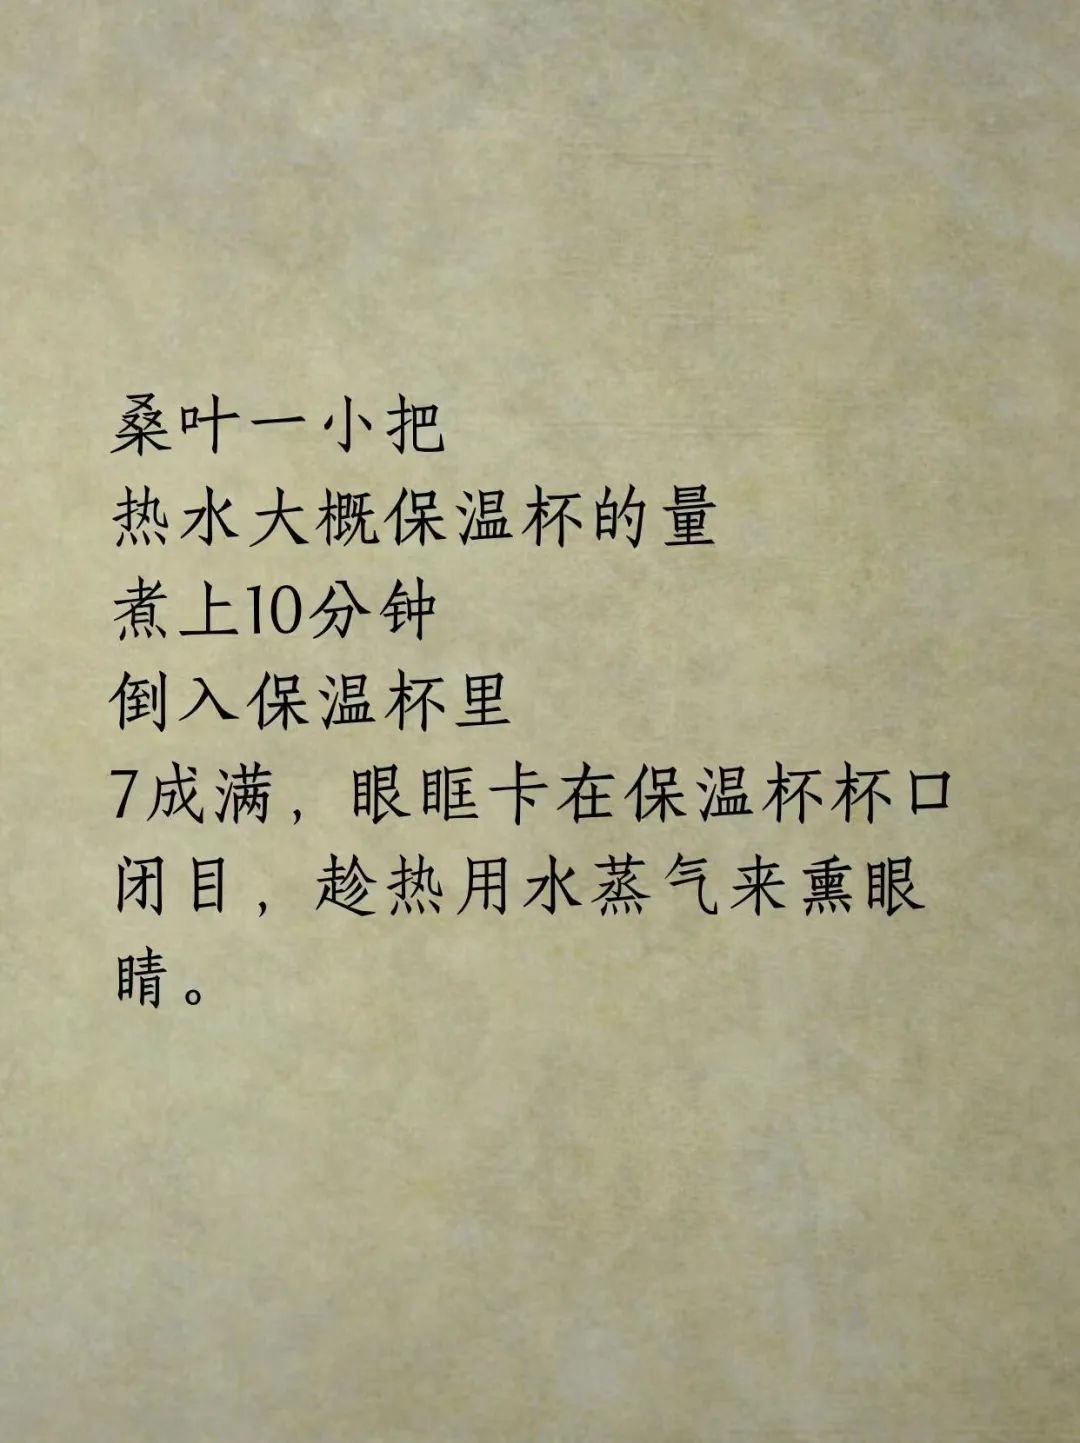 桑叶一小把
热水大概保温杯的量
煮上10分钟
倒入保温杯里
7成满，眼眶卡在保温杯杯口
闭目，趁热用水蒸气来熏眼
睛。